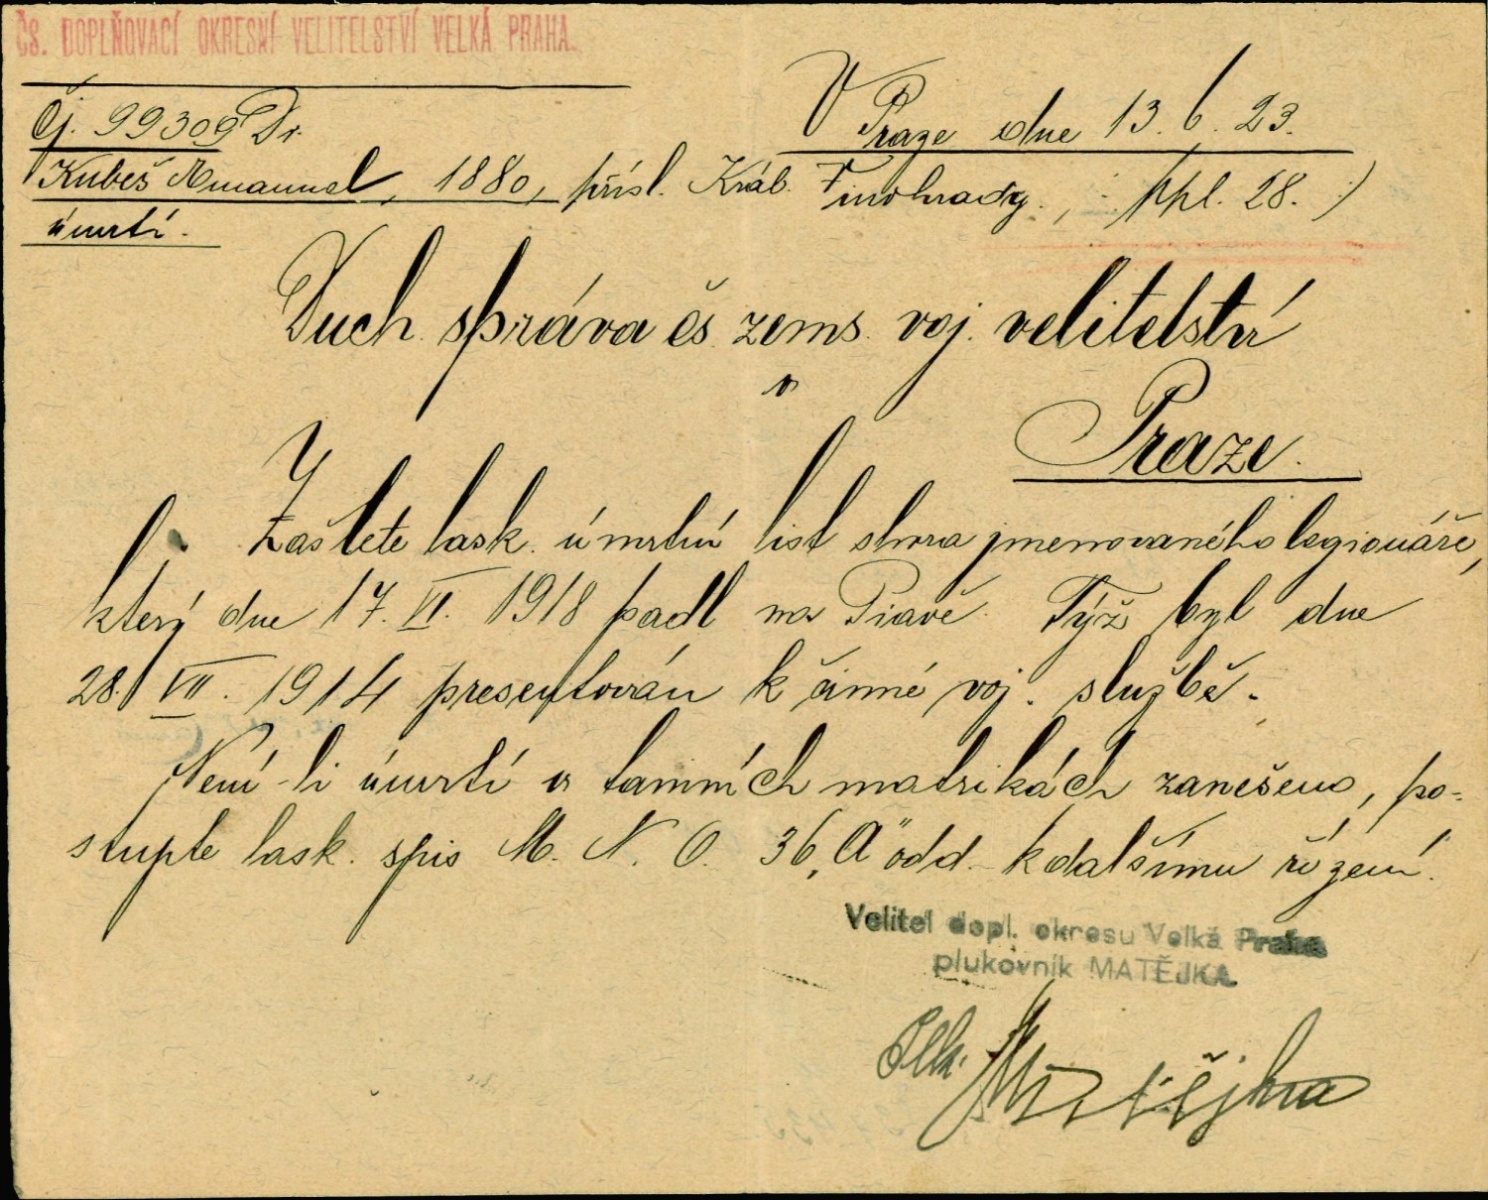 Čs. DOPLŇOVACÍ OKRESNÍ VELITELSTVÍ VELKÁ PRAHA.
V Praze dne 13. 6. 23.
Čj. 99309 Di.
Kubeš Emanuel, 1880, přísl. Král. Vinohrady., /: ppl. 28. :/
úmrtí.
Duch. správa čs. zems. voj. velitelství
v
Praze.
Zašlete lask. úmrtní list shora jmenovaného legionáře,
který dne 17. VI. 1918 padl na Piavě. Týž byl dne
28. VII. 1914 presentován k činné voj. službě.
Není-li úmrtí v tamních matrikách zanešeno, po-
stupte lask. spis M. N. O. 36, A" odd. k dalšímu řízení.
Velitel dopl. okresu Velká Praha
plukovník MATĚJKA.
Plk. Matějka